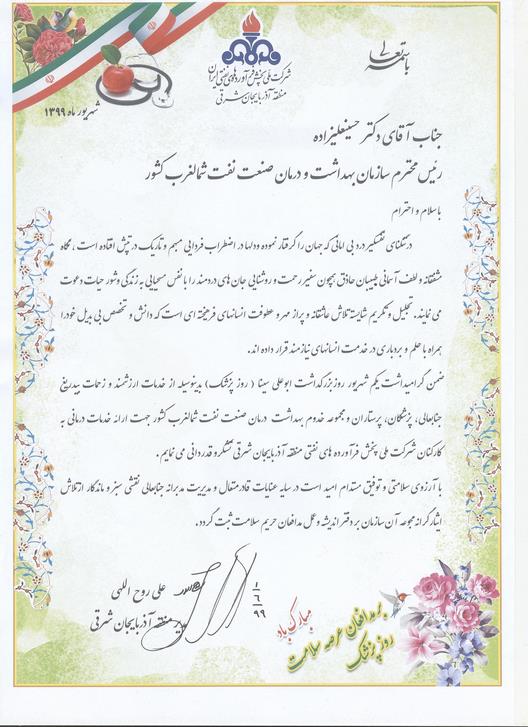 باسمه تعالی
شرکت ملی پخش فرآورده‌های نفتی ایران
منطقه آذربایجان شرقی
شهریور ماه ۱۳۹۹
جناب آقای دکتر حسینعلیزاده
رئیس محترم سازمان بهداشت و درمان صنعت نفت شمالغرب کشور
با سلام و احترام
در تنگنای نفسگیر درد بی امانی که جهان را گرفتار نموده و دلها در اضطراب فردایی مبهم و تاریک در تپش افتاده است ، نگاه
مشفقانه و لطف آسمانی طبیبان حاذق همچون سفیر رحمت و روشنایی جان های دردمند را با نفس مسیحایی به زندگی و شور حیات دعوت
می نمایند. تجلیل و تکریم شایسته تلاش عاشقانه و پر از مهر و عطوفت انسانهای فرهیخته ای است که دانش و تخصص بی بدیل خود را
همراه با حلم و بردباری در خدمت انسانهای نیازمند قرار داده اند.
ضمن گرامیداشت یکم شهریور روز بزرگداشت ابوعلی سینا ( روز پزشک) بدینوسیله از خدمات ارزشمند و زحمات بیدریغ
جنابعالی، پزشکان، پرستاران و مجموعه خدوم بهداشت درمان صنعت نفت شمالغرب کشور جهت ارائه خدمات درمانی به
کارکنان شرکت ملی پخش فرآورده های نفتی منطقه آذربایجان شرقی تشکر و قدردانی می نمایم.
با آرزوی سلامتی و توفیق مستدام امید است در سایه عنایات قادر متعال و مدیریت مدبرانه جنابعالی نقشی سبز و ماندگار از تلاش
ایثارگرانه مجموعه آن سازمان بر دفتر اندیشه و عمل مدافعان حریم سلامت ثبت گردد.
علی روح اللهی
مدیر منطقه آذربایجان شرقی
۹۹/۶/۱
روز پزشک
بر مدافعان عرصه سلامت
مبارک باد